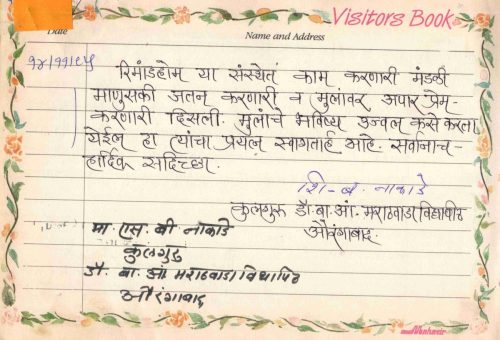 Visitors Book
Date
Name and Address
१८/११/९५
रिमांडहोम या संस्थेत काम करणारी मंडळी
माणुसकी जतन करणारी व मुलांवर अपार प्रेम-
करणारी दिसली. मुलांचे भविष्य उज्वल कसे करता
येईल हा त्यांचा प्रयत्न स्वागतार्ह आहे. सर्वांनाच-
हार्दिक सदिच्छा.
शि- ब. नाकाडे
कुलगुरु डॉ. बा. आं. मराठवाडा विद्यापीठ
औरंगाबाद.
प्रा. एस. बी नाकाडे
कुलगुरु
डॉ. बा. आं मराठवाडा विद्यापिठ
औरंगाबाद